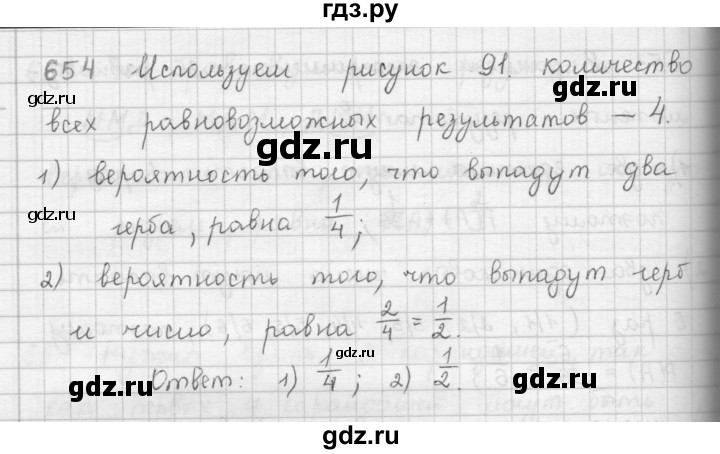 гдз.ру
654 Используем рисунок 91. количество
gdz.ru
gdz.ru
всех равновозможных результатов – 4.
gdz.ru
1) вероятность того, что выпадут два
gdz.ru
герба, равна 1/4;
2) вероятность того, что выпадут герб
и число, равна 2/4 = 1/2.
gdz.ru
Ответ: 1) 1/4; 2) 1/2.
gdz.ru
gdz.ru
gdz.ru